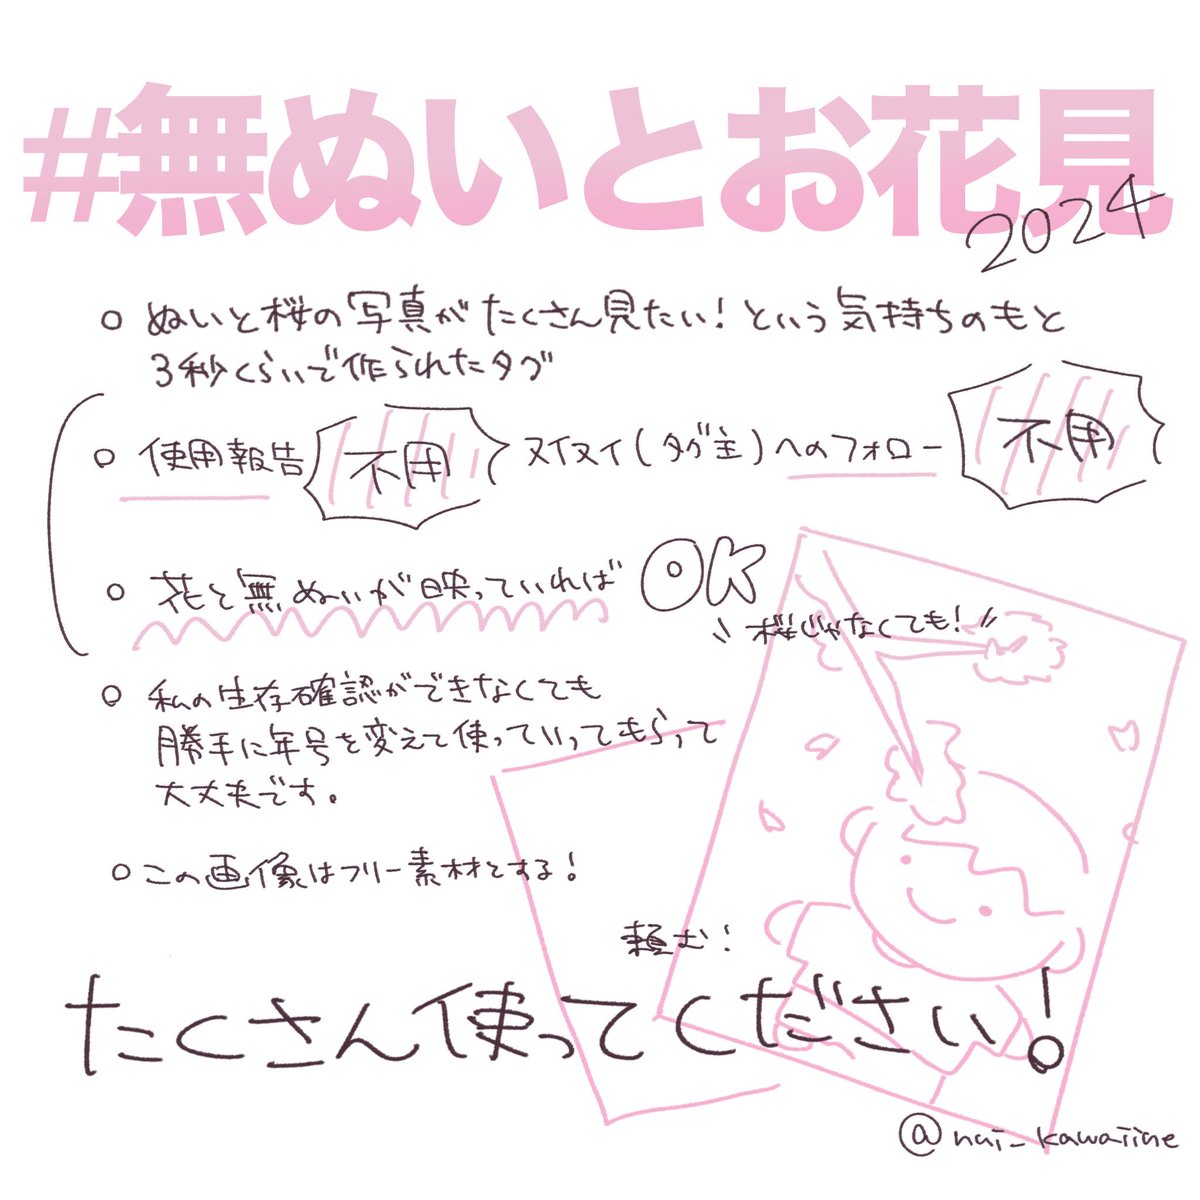 #無ぬいとお花見
2024
○ ぬいと桜の写真がたくさん見たい！という気持ちのもと
3秒くらいで作られたタグ
○ 使用報告 不用 ヌイヌイ（タグ主）へのフォロー 不用
○ 花と無ぬいが映っていれば OK
\\ 桜じゃなくても! //
○ 私の生存確認ができなくても
勝手に年号を変えて使っていってもらって
大丈夫です。
○ この画像はフリー素材とする！
頼む！
たくさん使ってください！
@nui_kawaiine